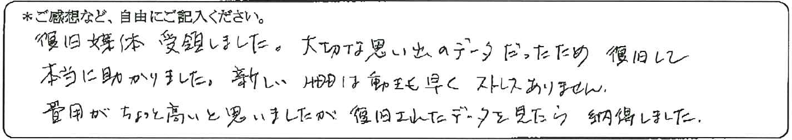 *ご感想など、自由にご記入ください。
復旧媒体 受領しました。大切な思い出のデータだったため 復旧して
本当に助かりました。新しい HDDは動きも早く ストレスありません。
費用がちょっと高いと思いましたが 復旧されたデータを見たら 納得しました。